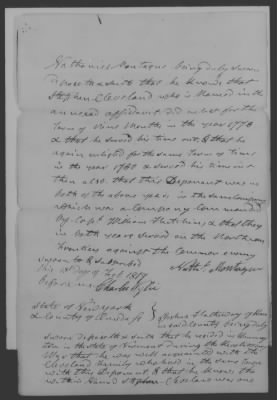 Nathaniel Montague being duly sworn
deposeth & saith that he knows that
Stephen Cleveland who is Named in the
annexed affidavit did enlist for the
term of Nine Months in the year 1778
& that he served his time out, & that he
again enlisted for the same term of time
in the year 1780 & served his time out
then also. that this Deponent was in
both of the above years in the same company
which was a company commanded
by Capt William Hutchings & that they
in both years served on the Northern
frontiers against the common enemy
Sworn to & subscribed
this day of 1819
before me Nathl Montague
Charles
State of
& County of } of
in said County being duly
sworn deposeth & saith that he resided in
in the State of Vermont during the Revolutionary
War that he was well acquainted with the
Cleveland family who lived in the same
with this Deponent & that he knows the
within Named Stephen Cleveland was one